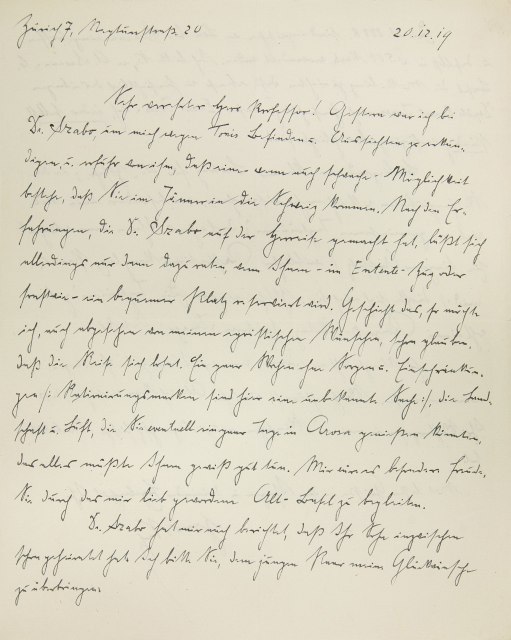 Zürich 7, Neptunstraß. 20 20.12.19
Sehr verehrter Herr Professor! Gestern war ich bei
Dr. Szabo, um mich wegen Ihres Befindens u. Aussichten zu erkun-
digen, u. erfuhr von ihm, daß eine - wenn auch schwache - Möglichkeit
bestehe, daß Sie im Jänner in die Schweiz kommen. Nach den Er-
fahrungen, die Dr. Szabo auf der Herreise gemacht hat, läßt sich
allerdings nur dann dazu raten, wenn Ihnen - im Entente-Zug oder
sonstwie - ein bequemer Platz reserviert wird. Geschieht das, so möchte
ich, auch abgesehen von meinen egoistischen Wünschen, schon glauben,
daß die Reise sich lohnt. Ein paar Wochen ohne Sorgen u. Einschränkun-
gen /: Rationierungsmarken sind hier eine unbekannte Sache :/, die Land-
schaft u. Luft, die Sie eventuell ein paar Tage in Arosa genießen könnten,
das alles müßte Ihnen gewiß gut tun. Mir wäre es besondere Freude,
Sie durch das mir lieb gewordene Alt-Basel zu begleiten.
Dr. Szabo hat mir auch berichtet, daß Ihr Sohn inzwischen
schon geheiratet hat. Ich bitte Sie, dem jungen Paar meine Glückwünsche
zu überbringen.